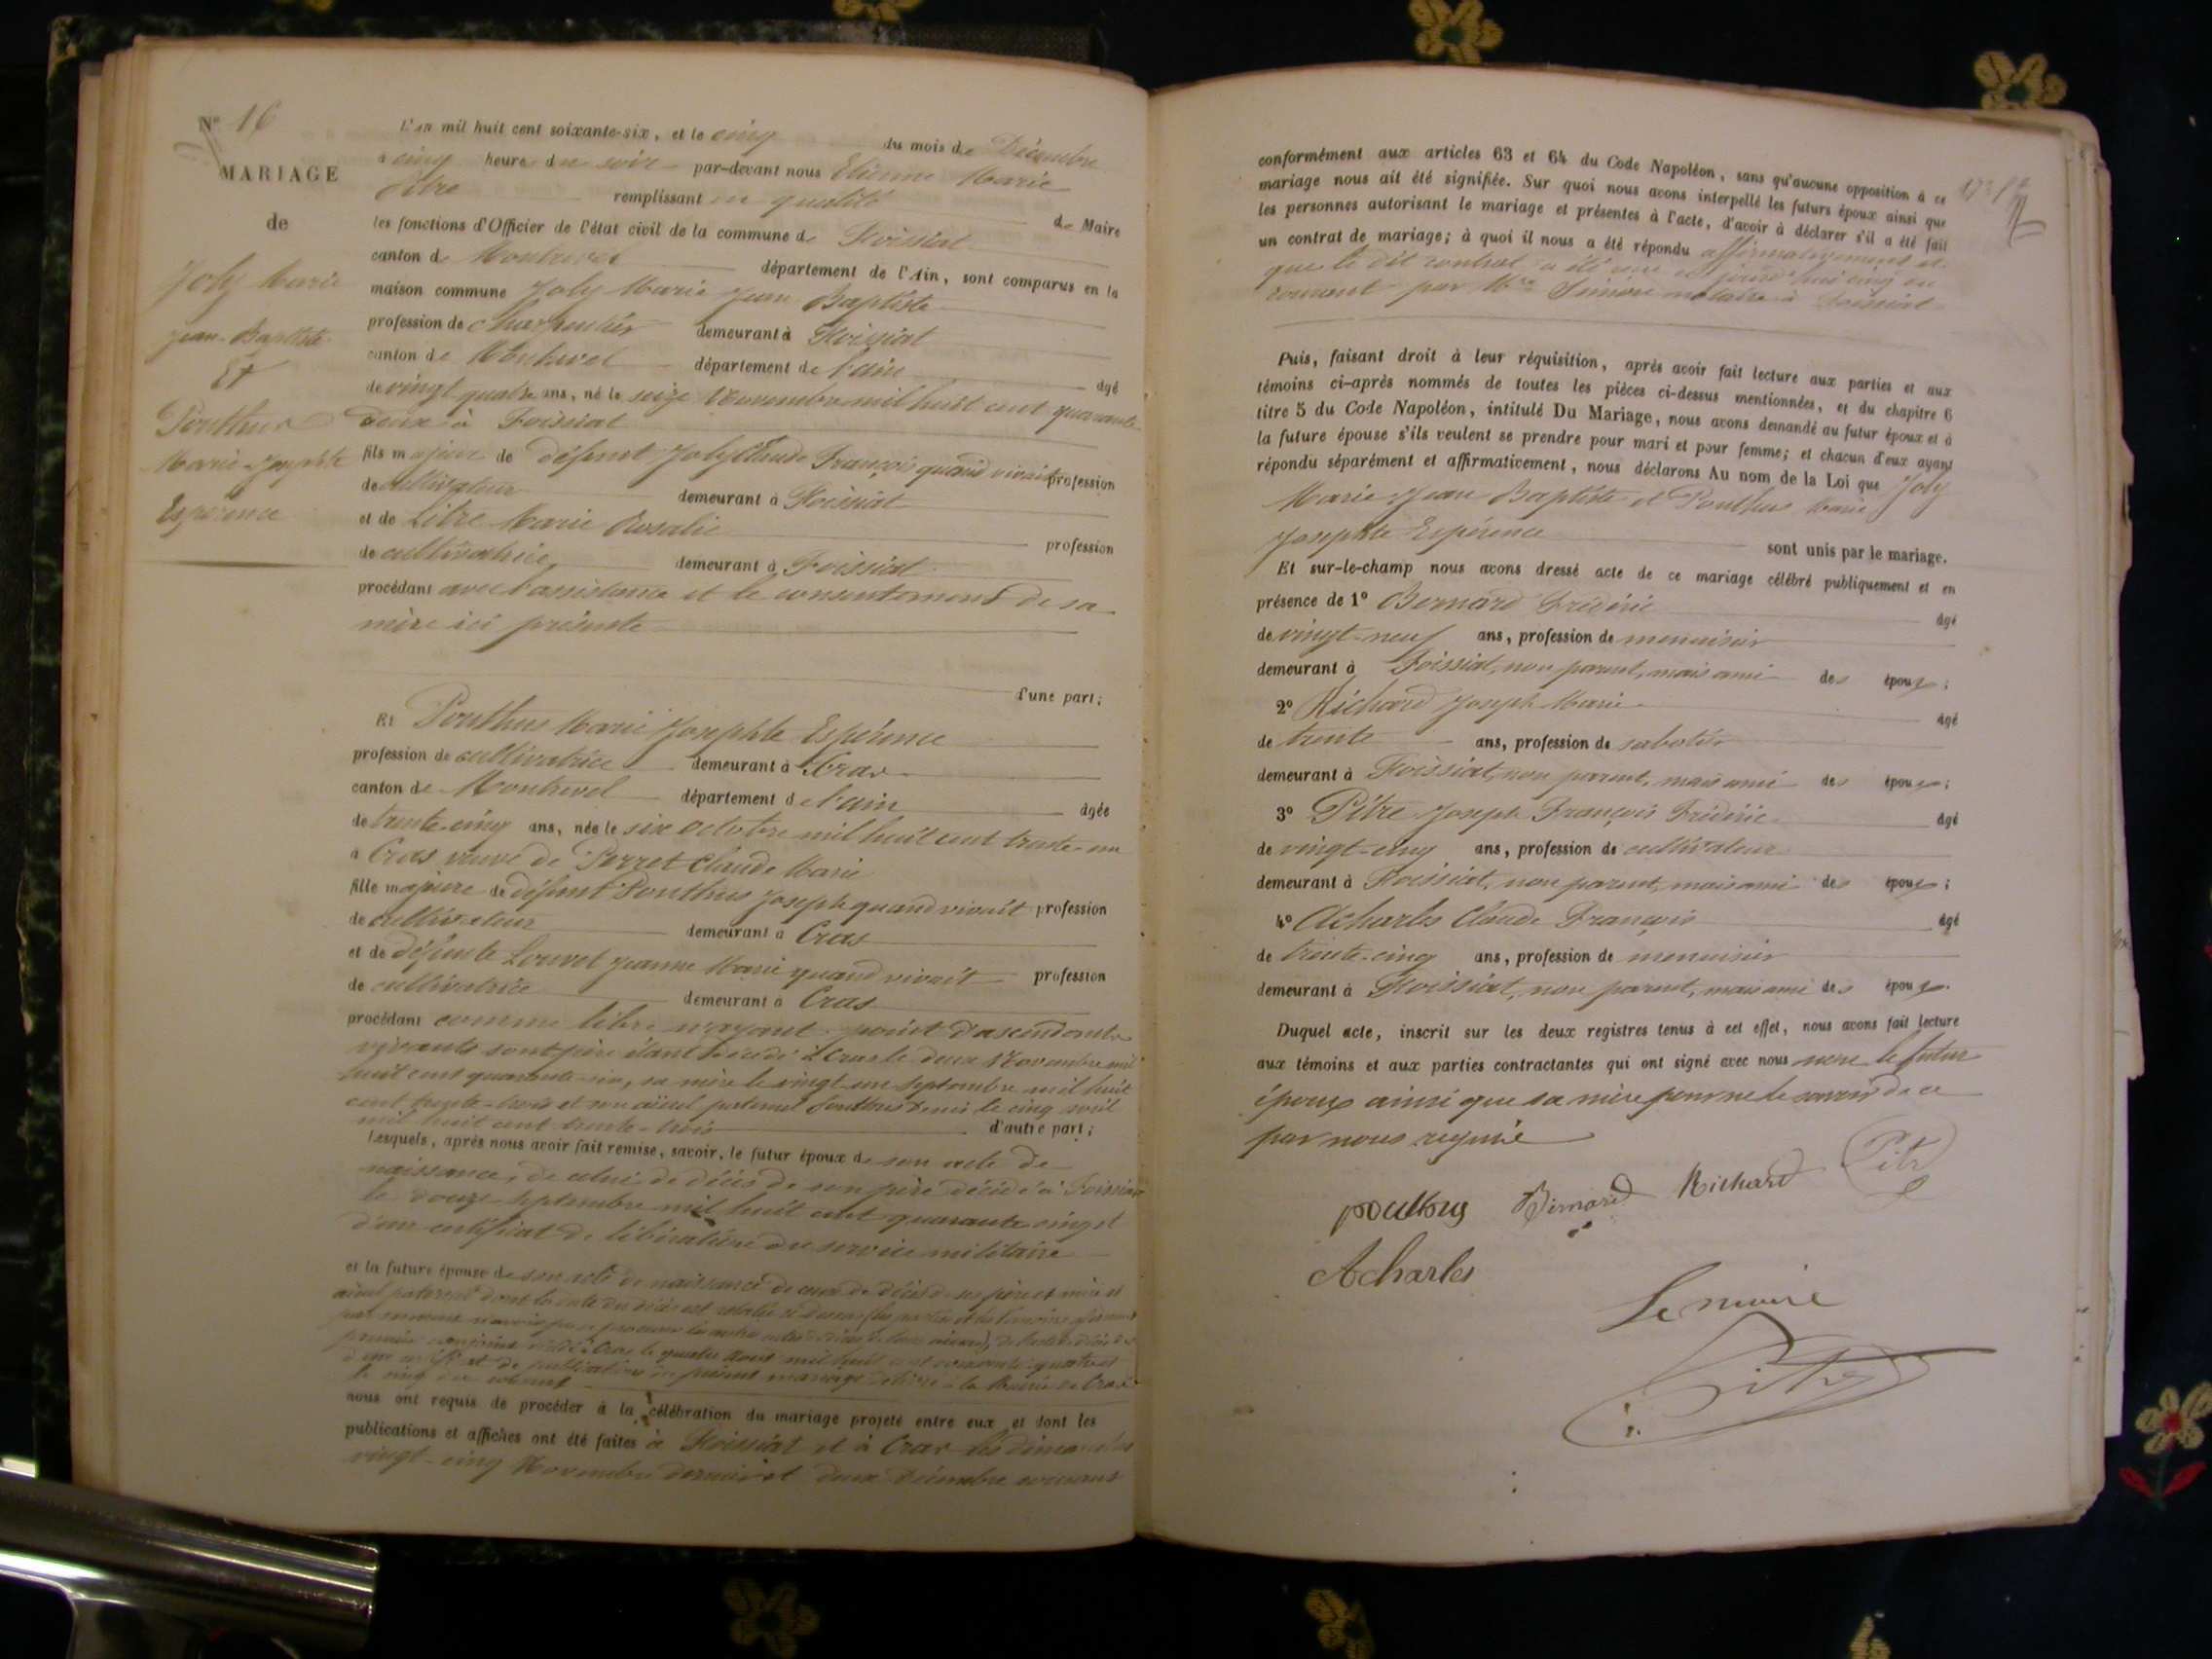 N° 16
MARIAGE
de
Joly Marie
Jean-Baptiste
Et
Ponthus
Marie-Josephte
Espérence
L'an mil huit cent soixante-six, et le cinq du mois de Décembre
à cinq heure du soir par-devant nous Etienne Marie
Pitre remplissant en qualité de Maire
les fonctions d'Officier de l'état civil de la commune de Foissiat
canton de Montrevel département de l'Ain, sont comparus en la
maison commune Joly Marie Jean Baptiste
profession de charpentier demeurant à Foissiat
canton de Montrevel département de l'ain âgé
de vingt quatre ans, né le seize Novembre mil huit cent quarante-
deux à Foissiat
fils majeur de défunt Joly Claude François quand vivait profession
de cultivateur demeurant à Foissiat
et de Marie Rosalie profession
de cultivatrice demeurant à Foissiat
procédant avec l'assistance et le consentement de sa
mère ici présente
d'une part;
Et Ponthus Marie Josephte Espérence
profession de cultivatrice demeurant à Cras
canton de Montrevel département de l'ain âgée
de trente-cinq ans, née le six Octobre mil huit cent trente-un
à Cras veuve de Perret Claude Marie
fille majeure de défunt Ponthus Joseph quand vivait profession
de cultivateur demeurant à Cras
et de défunte Louvet Jeanne Marie quand vivait profession
de cultivatrice demeurant à Cras
procédant comme libre n'ayant point d'ascendants
vivants sont père étant décédé à Cras le deux Novembre mil
huit cent quarante-six, sa mère le vingt-un Septembre mil huit
cent trente-trois et son aïeul paternel Ponthus Denis le cinq avril
mil huit cent trente-trois d'autre part;
Lesquels, après nous avoir fait remise, savoir, le futur époux de son acte de
naissance, de celui de décès de son père décédé à Foissiat
le douze Septembre mil huit cent quarante cinq et
d'un certificat de libération du service militaire
et la future épouse de son acte de naissance de ceux de décès de ses père et mère et
aïeul paternel dont la date du décès est relatée ci dessus
le quatre Août mil huit cent soixante-quatre et
d'un certificat de publication du présent mariage délivré à la Mairie de Cras
le cinq du courant
nous ont requis de procéder à la célébration du mariage projeté entre eux et dont les
publications et affiches ont été faites à Foissiat et à Cras les dimanches
vingt-cinq Novembre dernier et deux Décembre courant
conformément aux articles 63 et 64 du Code Napoléon, sans qu'aucune opposition à ce
mariage nous ait été signifiée. Sur quoi nous avons interpellé les futurs époux ainsi que
les personnes autorisant le mariage et présentes à l'acte, d'avoir à déclarer s'il a été fait
un contrat de mariage; à quoi il nous a été répondu affirmativement et
que le dit contrat a été reçu aujourd'hui cinq du
courant par Me notaire à Foissiat
Puis, faisant droit à leur réquisition, après avoir fait lecture aux parties et aux
témoins ci-après nommés de toutes les pièces ci-dessus mentionnées, et du chapitre 6
titre 5 du Code Napoléon, intitulé Du Mariage, nous avons demandé au futur époux et à
la future épouse s'ils veulent se prendre pour mari et pour femme; et chacun d'eux ayant
répondu séparément et affirmativement, nous déclarons Au nom de la Loi que Joly
Marie Jean Baptiste et Ponthus Marie
Josephte Espérence sont unis par le mariage.
Et sur-le-champ nous avons dressé acte de ce mariage célébré publiquement et en
présence de 1° Bernard Frédéric âgé
de vingt-neuf ans, profession de menuisier
demeurant à Foissiat, non parent, mais ami des époux;
2° Richard Joseph Marie âgé
de trente ans, profession de sabotier
demeurant à Foissiat, non parent, mais ami des époux;
3° Pitre Joseph François Frédéric âgé
de vingt-cinq ans, profession de cultivateur
demeurant à Foissiat, non parent, mais ami des époux;
4° Acharles Claude François âgé
de trente-cinq ans, profession de menuisier
demeurant à Foissiat, non parent, mais ami des époux.
Duquel acte, inscrit sur les deux registres tenus à cet effet, nous avons fait lecture
aux témoins et aux parties contractantes qui ont signé avec nous non le futur
époux ainsi que sa mère pour ne le savoir de ce
par nous requis
pouthus Bernard Richard Pitre
Acharles
Le maire
Pitre